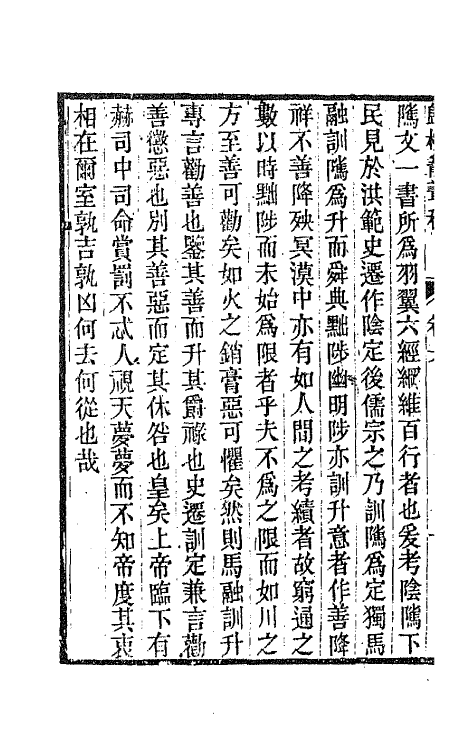 隲文一書所爲羽翼六經綱維百行者也爰考陰隲下
民見於洪範史遷作陰定後儒宗之乃訓隲爲定獨馬
融訓隲爲升而舜典黜陟幽明陟亦訓升意者作善降
祥不善降殃冥漠中亦有如人間之考績者故窮通之
數以時黜陟而未始爲限者乎夫不爲之限而如川之
方至善可勸矣如火之銷膏惡可懼矣然則馬融訓升
專言勸善也鑒其善而升其爵祿也史遷訓定兼言勸
善懲惡也別其善惡而定其休咎也皇矣上帝臨下有
赫司中司命賞罰不忒人視天夢夢而不知帝度其衷
相在爾室孰吉孰凶何去何從也哉